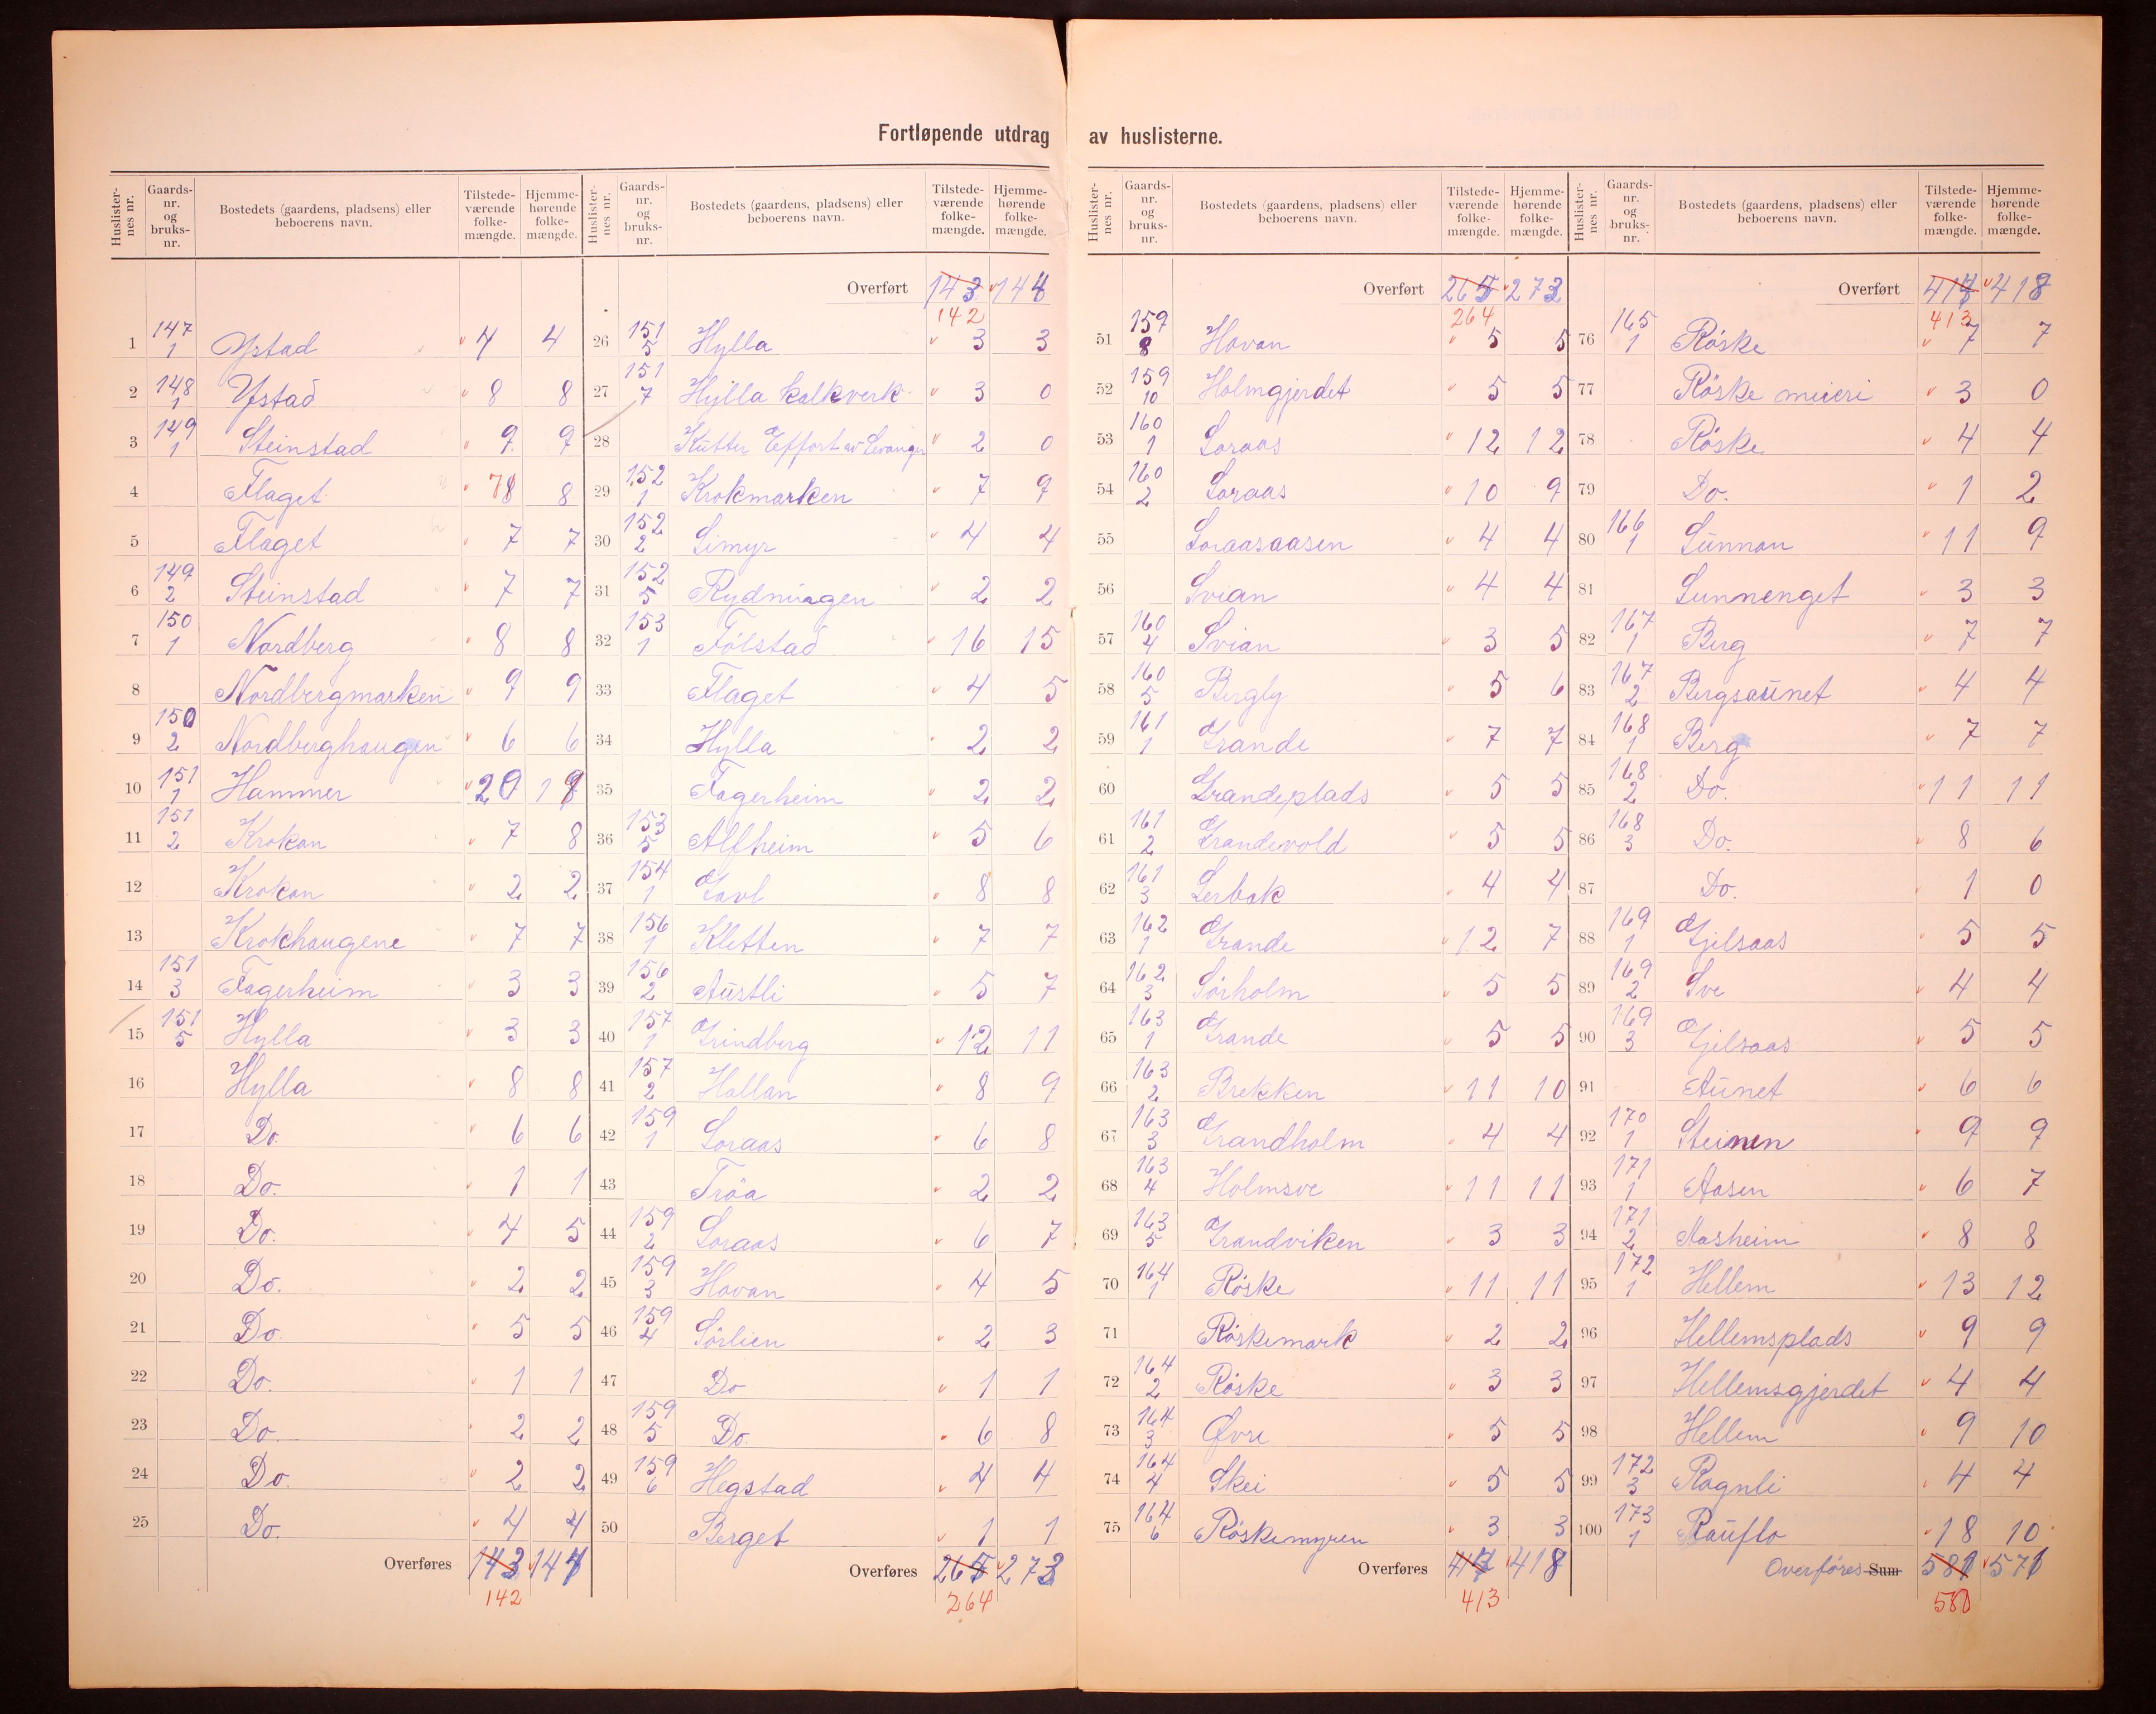 Fortløpende utdrag av huslisterne.
Huslister-nes nr. | Gaards-nr. og bruks-nr. | Bostedets (gaardens, pladsens) eller beboerens navn. | Tilstede-værende folke-mængde. | Hjemme-hørende folke-mængde.
1 147/1 Ystad 4 4
2 148/1 Ystad 8 8
3 149/1 Steinstad 9 9
4 Flaget 7 8 8
5 Flaget 7 7
6 149/2 Steinstad 7 7
7 150/1 Nordberg 8 8
8 Nordbergmarken 9 9
9 150/2 Nordberghaugen 6 6
10 151/1 Hammer 20 19
11 151/2 Krokan 7 8
12 Krokan 2 2
13 Krokhaugene 7 7
14 151/3 Fagerheim 3 3
15 151/5 Hylla 3 3
16 Hylla 8 8
17 Do. 6 6
18 Do. 1 1
19 Do. 4 5
20 Do. 2 2
21 Do. 5 5
22 Do. 1 1
23 Do. 2 2
24 Do. 2 2
25 Do. 4 4
Overføres 143 144
142
Huslister-nes nr. | Gaards-nr. og bruks-nr. | Bostedets (gaardens, pladsens) eller beboerens navn. | Tilstede-værende folke-mængde. | Hjemme-hørende folke-mængde.
Overført 143 144
142
26 151/5 Hylla 3 3
27 151/7 Hylla kalkverk 3 0
28 Kutter Effort av Levanger 2 0
29 152/1 Krokmarken 7 9
30 152/2 Limyr 4 4
31 152/5 Rydningen 2 2
32 153/1 Følstad 16 15
33 Flaget 4 5
34 Hylla 2 2
35 Fagerheim 2 2
36 153/5 Alfheim 5 6
37 154/1 Gavl 8 8
38 156/1 Kletten 7 7
39 156/2 Austli 5 7
40 157/1 Grindberg 12 11
41 157/2 Hallan 8 9
42 159/1 Loraas 6 8
43 Trøa 2 2
44 159/2 Loraas 6 7
45 159/3 Hovan 4 5
46 159/4 Sørlien 2 3
47 Do 1 1
48 159/5 Do. 6 8
49 159/6 Hegstad 4 4
50 Berget 1 1
Overføres 265 273
264
Huslister-nes nr. | Gaards-nr. og bruks-nr. | Bostedets (gaardens, pladsens) eller beboerens navn. | Tilstede-værende folke-mængde. | Hjemme-hørende folke-mængde.
Overført 265 273
264
51 159/8 Hovan 5 5
52 159/10 Holmgjerdet 5 5
53 160/1 Loraas 12 12
54 160/2 Loraas 10 9
55 Loraasaasen 4 4
56 Svian 4 4
57 160/4 Svian 3 5
58 160/5 Bergly 5 6
59 161/1 Grande 7 7
60 Grandeplads 5 5
61 161/2 Grandevold 5 5
62 161/3 Lerbak 4 4
63 162/1 Grande 12 7
64 162/3 Sørholm 5 5
65 163/1 Grande 5 5
66 163/2 Brekken 11 10
67 163/3 Grandholm 4 4
68 163/4 Holmsve 11 11
69 163/5 Grandviken 3 3
70 164/1 Røske 11 11
71 Røskemark 2 2
72 164/2 Røske 3 3
73 164/3 Øvre 5 5
74 164/4 Skei 5 5
75 164/6 Røskemyren 3 3
Overføres 418
413
Huslister-nes nr. | Gaards-nr. og bruks-nr. | Bostedets (gaardens, pladsens) eller beboerens navn. | Tilstede-værende folke-mængde. | Hjemme-hørende folke-mængde.
Overført 418
413
76 165/1 Røske 7 7
77 Røske meieri 3 0
78 Røske 4 4
79 Do. 1 2
80 166/1 Sunnan 11 9
81 Sunnenget 3 3
82 167/1 Berg 7 7
83 167/2 Bergsaunet 4 4
84 168/1 Berg 7 7
85 168/2 Do. 11 11
86 168/3 Do. 8 6
87 Do. 1 0
88 169/1 Gjilsaas 5 5
89 169/2 Sve 4 4
90 169/3 Gjilsaas 5 5
91 Aunet 6 6
92 170/1 Steinen 9 9
93 171/1 Aasen 6 7
94 171/2 Aasheim 8 8
95 172/1 Hellem 13 12
96 Hellemsplads 9 9
97 Hellemsgjerdet 4 4
98 Hellem 9 10
99 172/3 Ragnli 4 4
100 173/1 Rauflo 18 10
Overføres Sum 581 571
580